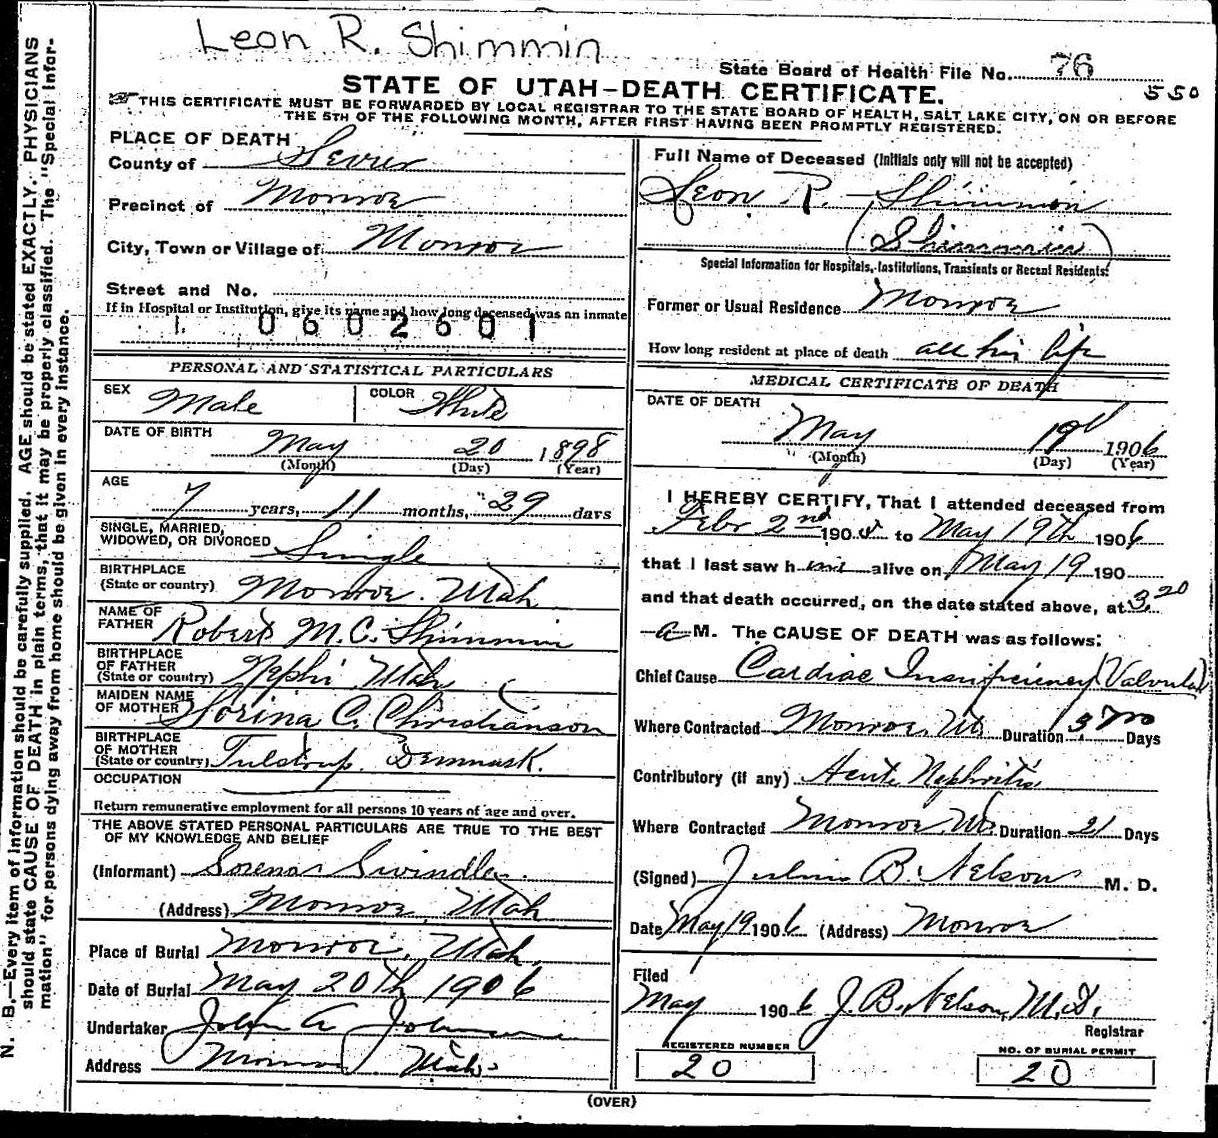 Leon R. Shimmin
State Board of Health File No. 76
STATE OF UTAH—DEATH CERTIFICATE.
550
THIS CERTIFICATE MUST BE FORWARDED BY LOCAL REGISTRAR TO THE STATE BOARD OF HEALTH, SALT LAKE CITY, ON OR BEFORE
THE 5TH OF THE FOLLOWING MONTH, AFTER FIRST HAVING BEEN PROMPTLY REGISTERED.
N. B.—Every item of information should be carefully supplied. AGE should be stated EXACTLY. PHYSICIANS
should state CAUSE OF DEATH in plain terms, that it may be properly classified. The "Special Infor-
mation" for persons dying away from home should be given in every instance.
PLACE OF DEATH
County of Sevier
Precinct of Monroe
City, Town or Village of Monroe
Street and No.
If in Hospital or Institution, give its name and how long deceased was an inmate
1 0602601
PERSONAL AND STATISTICAL PARTICULARS
SEX Male COLOR White
DATE OF BIRTH May 20 1898
(Month) (Day) (Year)
AGE 7 years, 11 months, 29 days
SINGLE, MARRIED,
WIDOWED, OR DIVORCED Single
BIRTHPLACE
(State or country) Monroe. Utah
NAME OF
FATHER Robert M. C. Shimmin
BIRTHPLACE
OF FATHER
(State or country) Nephi Utah
MAIDEN NAME
OF MOTHER Sorina C. Christianson
BIRTHPLACE
OF MOTHER
(State or country) Tulstrup. Denmark.
OCCUPATION
Return remunerative employment for all persons 10 years of age and over.
THE ABOVE STATED PERSONAL PARTICULARS ARE TRUE TO THE BEST
OF MY KNOWLEDGE AND BELIEF
(Informant) Sorena Swindle
(Address) Monroe, Utah
Place of Burial Monroe, Utah,
Date of Burial May 20th 1906
Undertaker John A
Address Monroe Utah
Full Name of Deceased (Initials only will not be accepted)
Leon R. Shimmin
(Shimmin)
Special Information for Hospitals, Institutions, Transients or Recent Residents:
Former or Usual Residence Monroe
How long resident at place of death all his life
MEDICAL CERTIFICATE OF DEATH
DATE OF DEATH
May 19 1906
(Month) (Day) (Year)
I HEREBY CERTIFY, That I attended deceased from
Febr 2nd 190 to May 19th 1906
that I last saw him alive on May 19 190
and that death occurred, on the date stated above, at 3.20
a M. The CAUSE OF DEATH was as follows:
Chief Cause Cardiac Insufficiency (Valvular)
Where Contracted Monroe, Ut. Duration 3 mo Days
Contributory (if any) Acute Nephritis
Where Contracted Monroe Ut. Duration 21 Days
(Signed) Julius B. Nelson M. D.
Date May 19 1906 (Address) Monroe
Filed
May 1906 J. B. Nelson, M.D.
Registrar
REGISTERED NUMBER
20
NO. OF BURIAL PERMIT
20
(OVER)